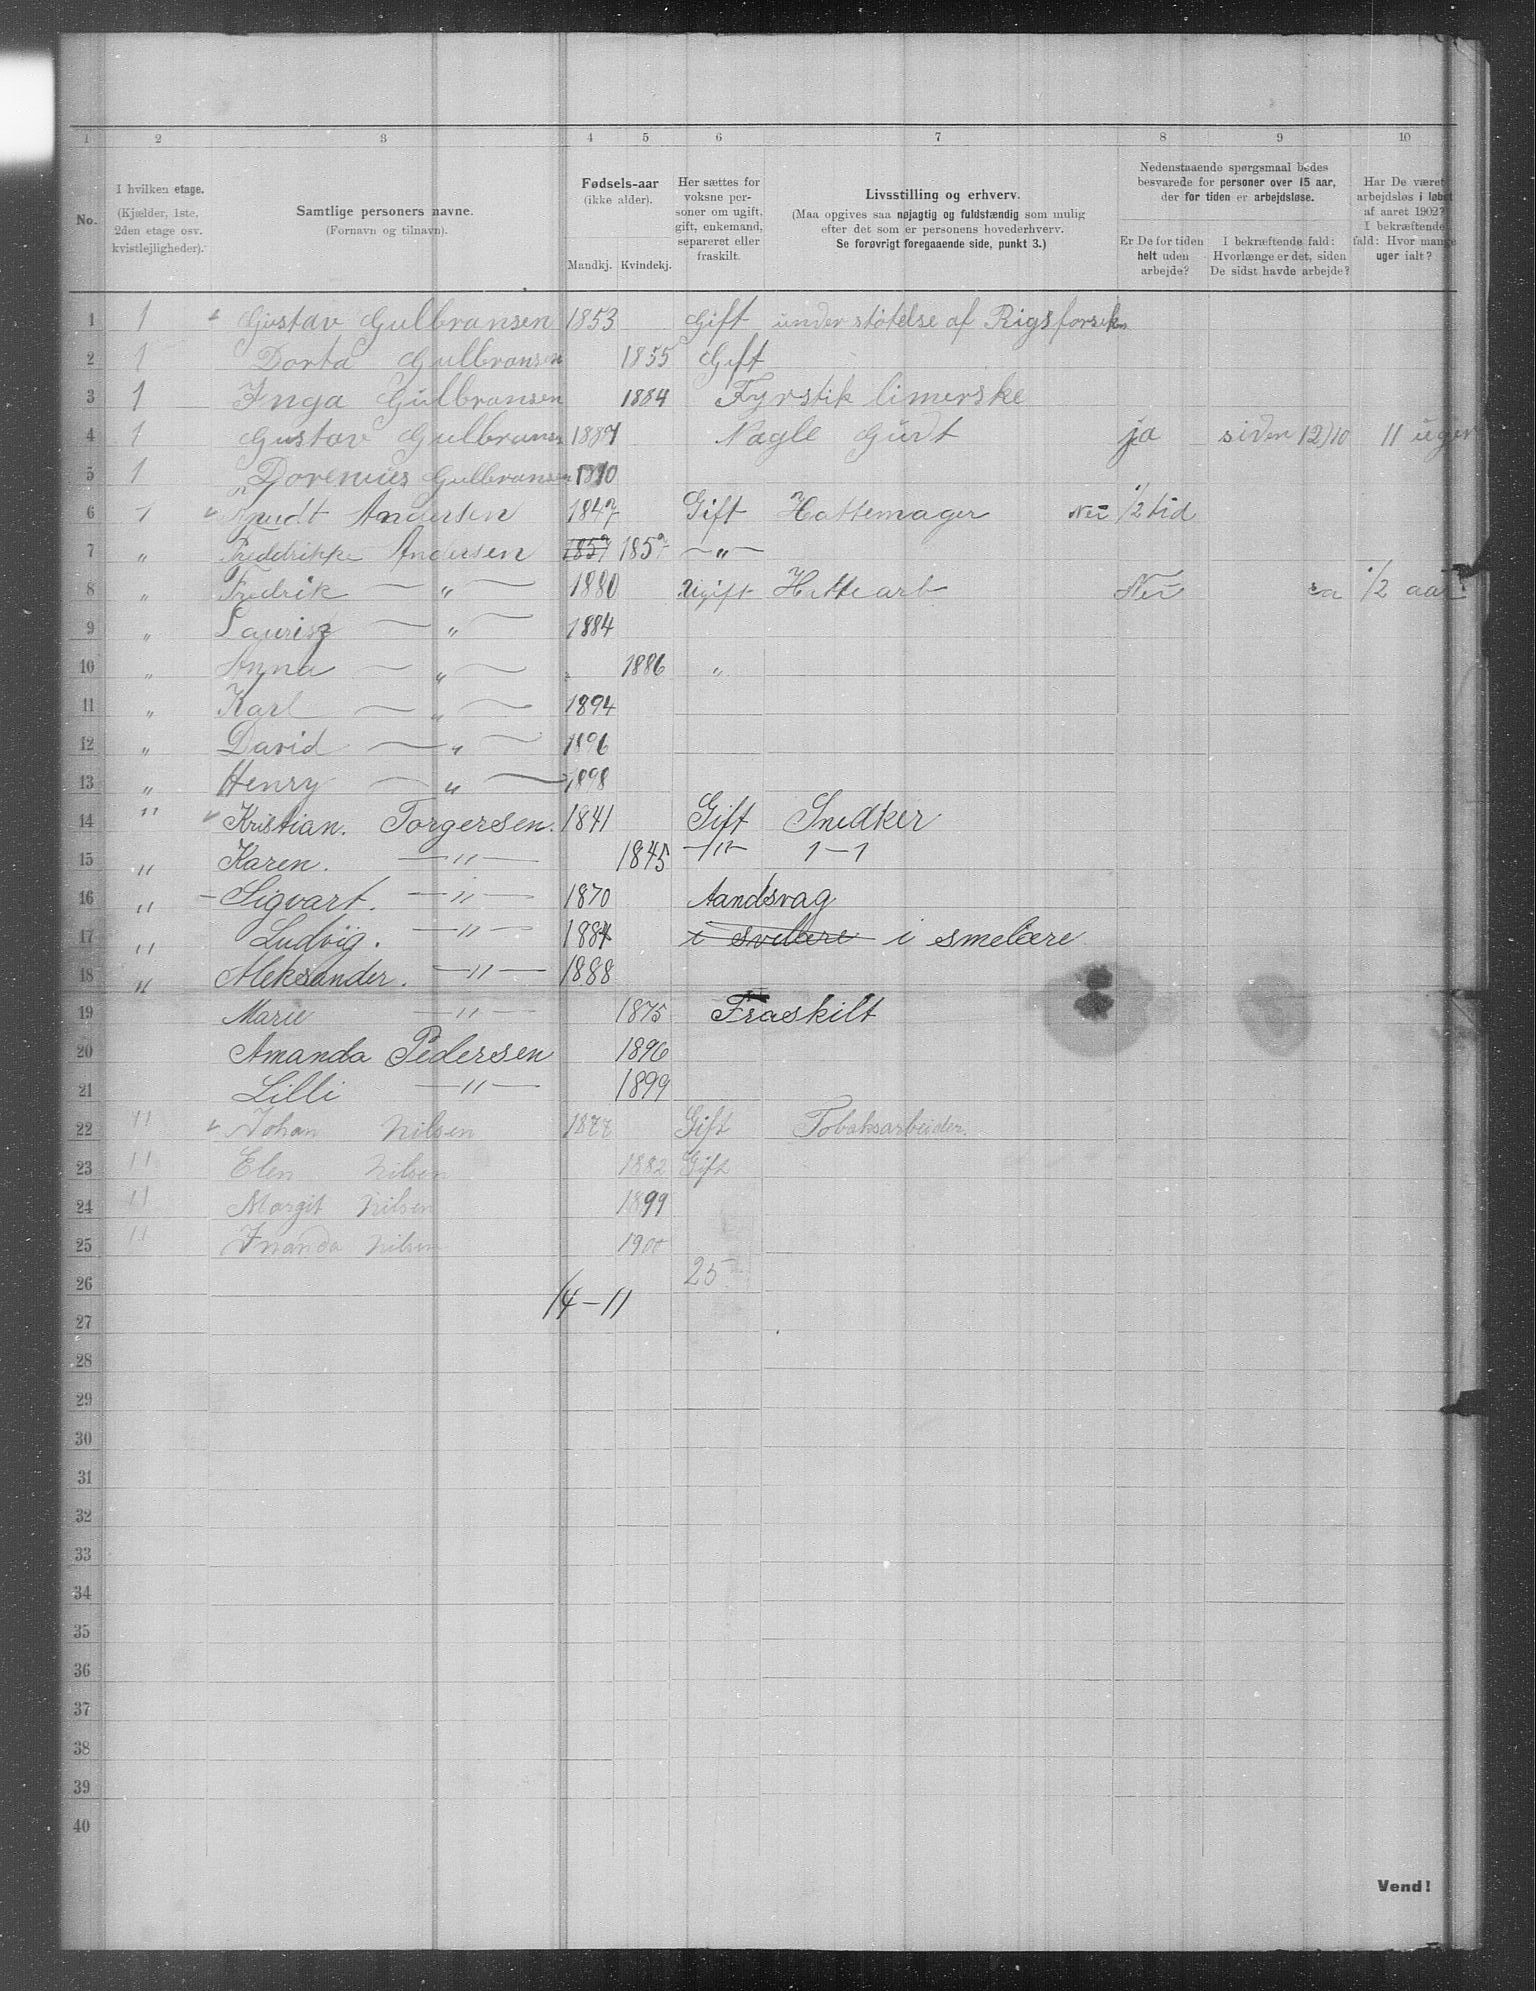 1 2 3 4 5 6 7 8 9 10
No.
I hvilken etage.
(Kjælder, 1ste,
2den etage osv.
kvistlejligheder).
Samtlige personers navne.
(Fornavn og tilnavn).
Fødsels-aar
(ikke alder).
Mandkj. Kvindekj.
Her sættes for
voksne per-
soner om ugift,
gift, enkemand,
separeret eller
fraskilt.
Livsstilling og erhverv.
(Maa opgives saa nøjagtig og fuldstændig som mulig
efter det som er personens hovederhverv.
Se forøvrigt foregaaende side, punkt 3.)
Nedenstaaende spørgsmaal bedes
besvarede for personer over 15 aar,
der for tiden er arbejdsløse.
Er De for tiden
helt uden
arbejde?
I bekræftende fald:
Hvorlænge er det, siden
De sidst havde arbejde?
Har De været
arbejdsløs i løbet
af aaret 1902?
I bekræftende
fald: Hvor mange
uger ialt?
1 1 Gustav Gulbransen 1853 Gift understøtelse af
2 1 Dorta Gulbransen 1855 Gift
3 1 Inga Gulbransen 1884 Fyrstik limerske
4 1 Gustav Gulbransen Nagle Gudt ja siden 12/10 11 uger
5 1 Gulbransen
6 1 Knudt Andersen 1847 Gift Hattemager Nei 1/2 tid
7 " Fredrikke Andersen 1857 1857 —"—
8 " Fredrik — " — 1880 Ugift Hattearb. Nei 1/2 aar
9 " Laurisz — " — 1884
10 " Anna — " — 1886 "
11 " Karl — " — 1894
12 " David — " — 1896
13 " Henry — " — 1898
14 " Kristian. Torgersen. 1841 Gift Snedker
15 " Karen. —"— 1845 —"— 1—1
16 " Sigvart. —"— 1870 Aandsvag
17 " Ludvig. —"— 1884 i svelære i smelære
18 " Aleksander. —"— 1888
19 Marie —"— 1875 Fraskilt
20 Amanda Pedersen 1896
21 Lilli —"— 1899
22 " Johan Nilsen 1877 Gift Tobaksarbeider.
23 " Elen Nilsen 1882 Gift
24 " Margit Nilsen 1899
25 " Nilsen 1900
26 25
27 14-11
28
29
30
31
32
33
34
35
36
37
38
39
40
Vend!